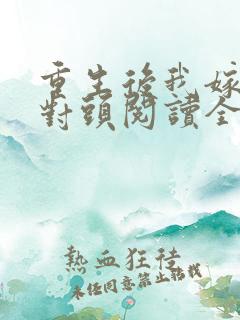 重生後我嫁
對頭閱讀全
熱血狂徒
未經同意禁止轉載